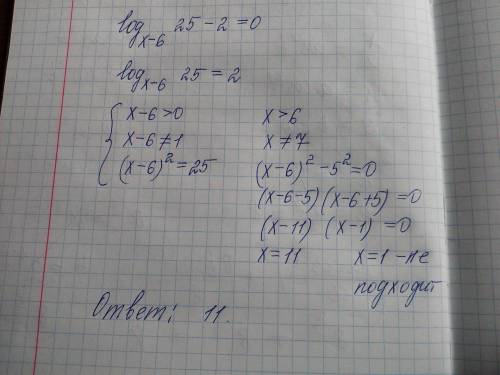 log_{x-6} 25 - 2 = 0
log_{x-6} 25 = 2
{ x-6>0 x>6
x-6≠1 x≠7
(x-6)² = 25 (x-6)² - 5² = 0
(x-6-5)(x-6+5) = 0
(x-11) (x-1) = 0
x = 11 x = 1 - не
подходит
Ответ: 11.